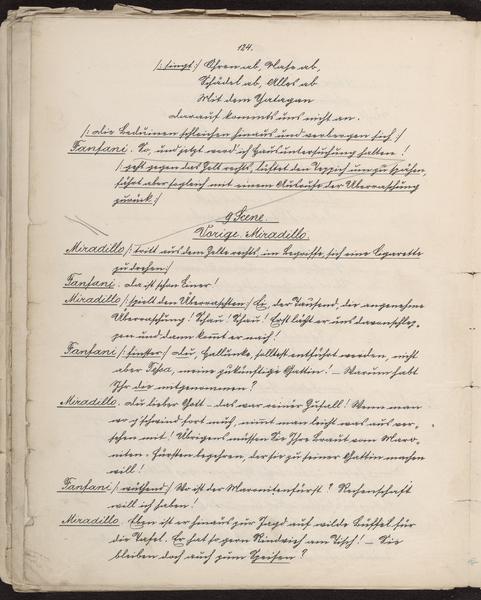 124.
/: singt :/ Ohren ab, Nase ab,
Schädel ab, Alles ab
Mit dem Yatagan
darauf kommts uns nicht an.
/: die Beduinen schleichen hinaus und verbergen sich :/
Fanfani. So, und jetzt werd ich Hausuntersuchung halten!
/: geht gegen das Zelt rechts, lüftet den Teppich um zu spähen,
fährt aber sogleich mit einem Ausrufe der Überraschung
zurück :/
9 Scene.
Vorige. Miradillo.
Miradillo /: tritt aus dem Zelte rechts, im Begriffe, sich eine Cigarette
zu drehen :/
Fanfani. Da ist schon Einer!
Miradillo /: spielt den Überraschten :/ Ei, der Tausend, die angenehme
Überraschung! Schau! Schau! Erst läßt er uns davonschlep-
pen und dann kommt er nach!
Fanfani /: finster :/ Du, Hallunke, solltest entführt werden, nicht
aber meine zukünftige Gattin! – Warum habt
Ihr die mitgenommen?
Miradillo. Du lieber Gott – das war reiner Zufall! Wenn man
so g'schwind fort muß, nimmt man leicht was aus ver-
sehen mit! Übrigens müssen Sie Ihre Braut vom Maro-
niten-Fürsten begehren, der sie zu seiner Gattin machen
will!
Fanfani /: wüthend :/ Wo ist der Maronitenfürst? Rechenschaft
will ich haben!
Miradillo. Eben ist er hinaus zur Jagd auf wilde Büffel für
die Tafel. Er hat so gern Rindvieh am Tisch! – Sie
bleiben doch auch zum Speisen?